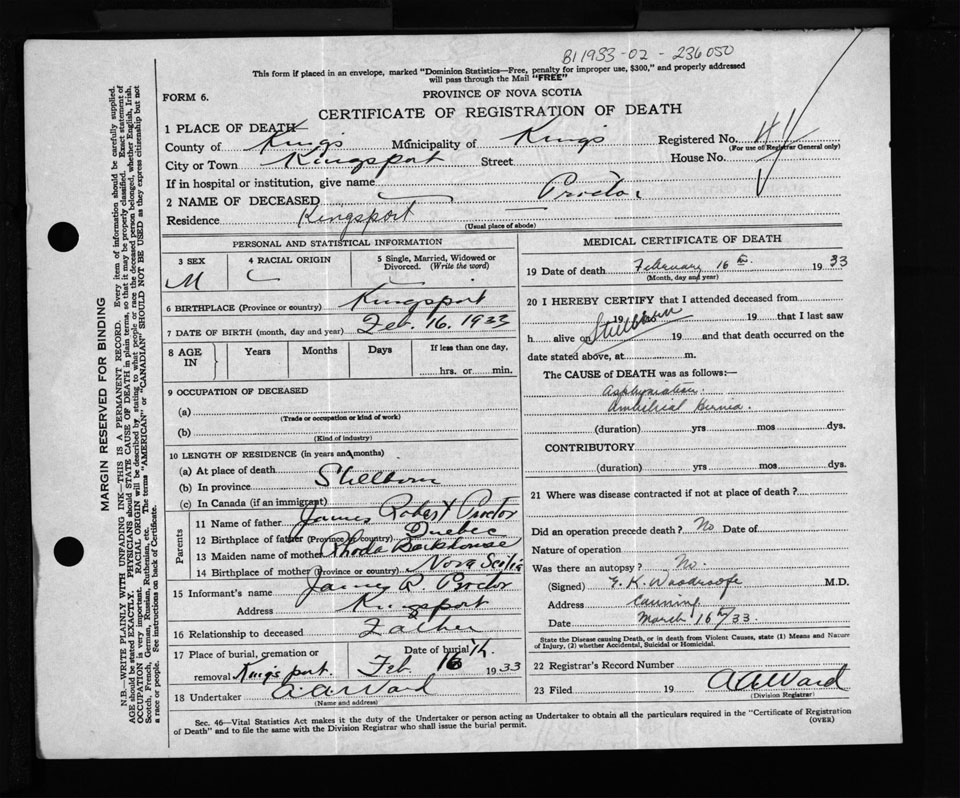 B1 1933-02-236050
This form if placed in an envelope, marked "Dominion Statistics—Free, penalty for improper use, $300," and properly addressed
will pass through the Mail "FREE"
FORM 6.
PROVINCE OF NOVA SCOTIA
CERTIFICATE OF REGISTRATION OF DEATH
1 PLACE OF DEATH
County of Kings Municipality of Kings Registered No.
(For use of Registrar General only)
City or Town Kingsport Street House No.
If in hospital or institution, give name
2 NAME OF DECEASED — Proctor
Residence Kingsport
(Usual place of abode)
PERSONAL AND STATISTICAL INFORMATION
3 SEX 4 RACIAL ORIGIN 5 Single, Married, Widowed or Divorced. (Write the word)
M
6 BIRTHPLACE (Province or country) Kingsport
7 DATE OF BIRTH (month, day and year) Feb. 16. 1933
8 AGE IN Years Months Days If less than one day,
hrs. or min.
9 OCCUPATION OF DECEASED
(a)
(Trade or occupation or kind of work)
(b)
(Kind of industry)
10 LENGTH OF RESIDENCE (in years and months)
(a) At place of death
(b) In province Stillborn
(c) In Canada (if an immigrant)
Parents
11 Name of father James Robert Proctor
12 Birthplace of father (Province or country) Quebec
13 Maiden name of mother Rhoda Barkhouse
14 Birthplace of mother (Province or country) Nova Scotia
15 Informant's name James R. Proctor
Address Kingsport
16 Relationship to deceased Father
17 Place of burial, cremation or removal Kingsport Date of burial Feb 16th 1933
18 Undertaker A.A. Ward
(Name and address)
MEDICAL CERTIFICATE OF DEATH
19 Date of death February 16th 1933
(Month, day and year)
20 I HEREBY CERTIFY that I attended deceased from
19 Stillborn 19 that I last saw
h alive on 19 and that death occurred on the
date stated above, at m.
The CAUSE of DEATH was as follows:—
Asphyxiation.
Umbilical Hernia.
(duration) yrs mos dys.
CONTRIBUTORY
(duration) yrs mos dys.
21 Where was disease contracted if not at place of death?
Did an operation precede death? No Date of
Nature of operation
Was there an autopsy? No.
(Signed) E. K. Woodroofe M.D.
Address Canning
Date March 16th/33.
State the Disease causing Death, or in death from Violent Causes, state (1) Means and Nature
of Injury, (2) whether Accidental, Suicidal or Homicidal.
22 Registrar's Record Number
23 Filed 19 A A Ward
(Division Registrar)
Sec. 46—Vital Statistics Act makes it the duty of the Undertaker or person acting as Undertaker to obtain all the particulars required in the "Certificate of Registration
of Death" and to file the same with the Division Registrar who shall issue the burial permit.
(OVER)
MARGIN RESERVED FOR BINDING
N.B.—WRITE PLAINLY WITH UNFADING INK—THIS IS A PERMANENT RECORD. Every item of information should be carefully supplied.
AGE should be stated EXACTLY. PHYSICIANS should STATE CAUSE OF DEATH in plain terms, so that it may be properly classified. Exact statement of
OCCUPATION is very important. RACIAL ORIGIN will be described by stating to what people or race the deceased person belonged, whether English, Irish,
Scotch, French, German, Russian, Ruthenian, etc. The terms "AMERICAN" or "CANADIAN" SHOULD NOT BE USED as they express citizenship but not
a race or people. See instructions on back of Certificate.